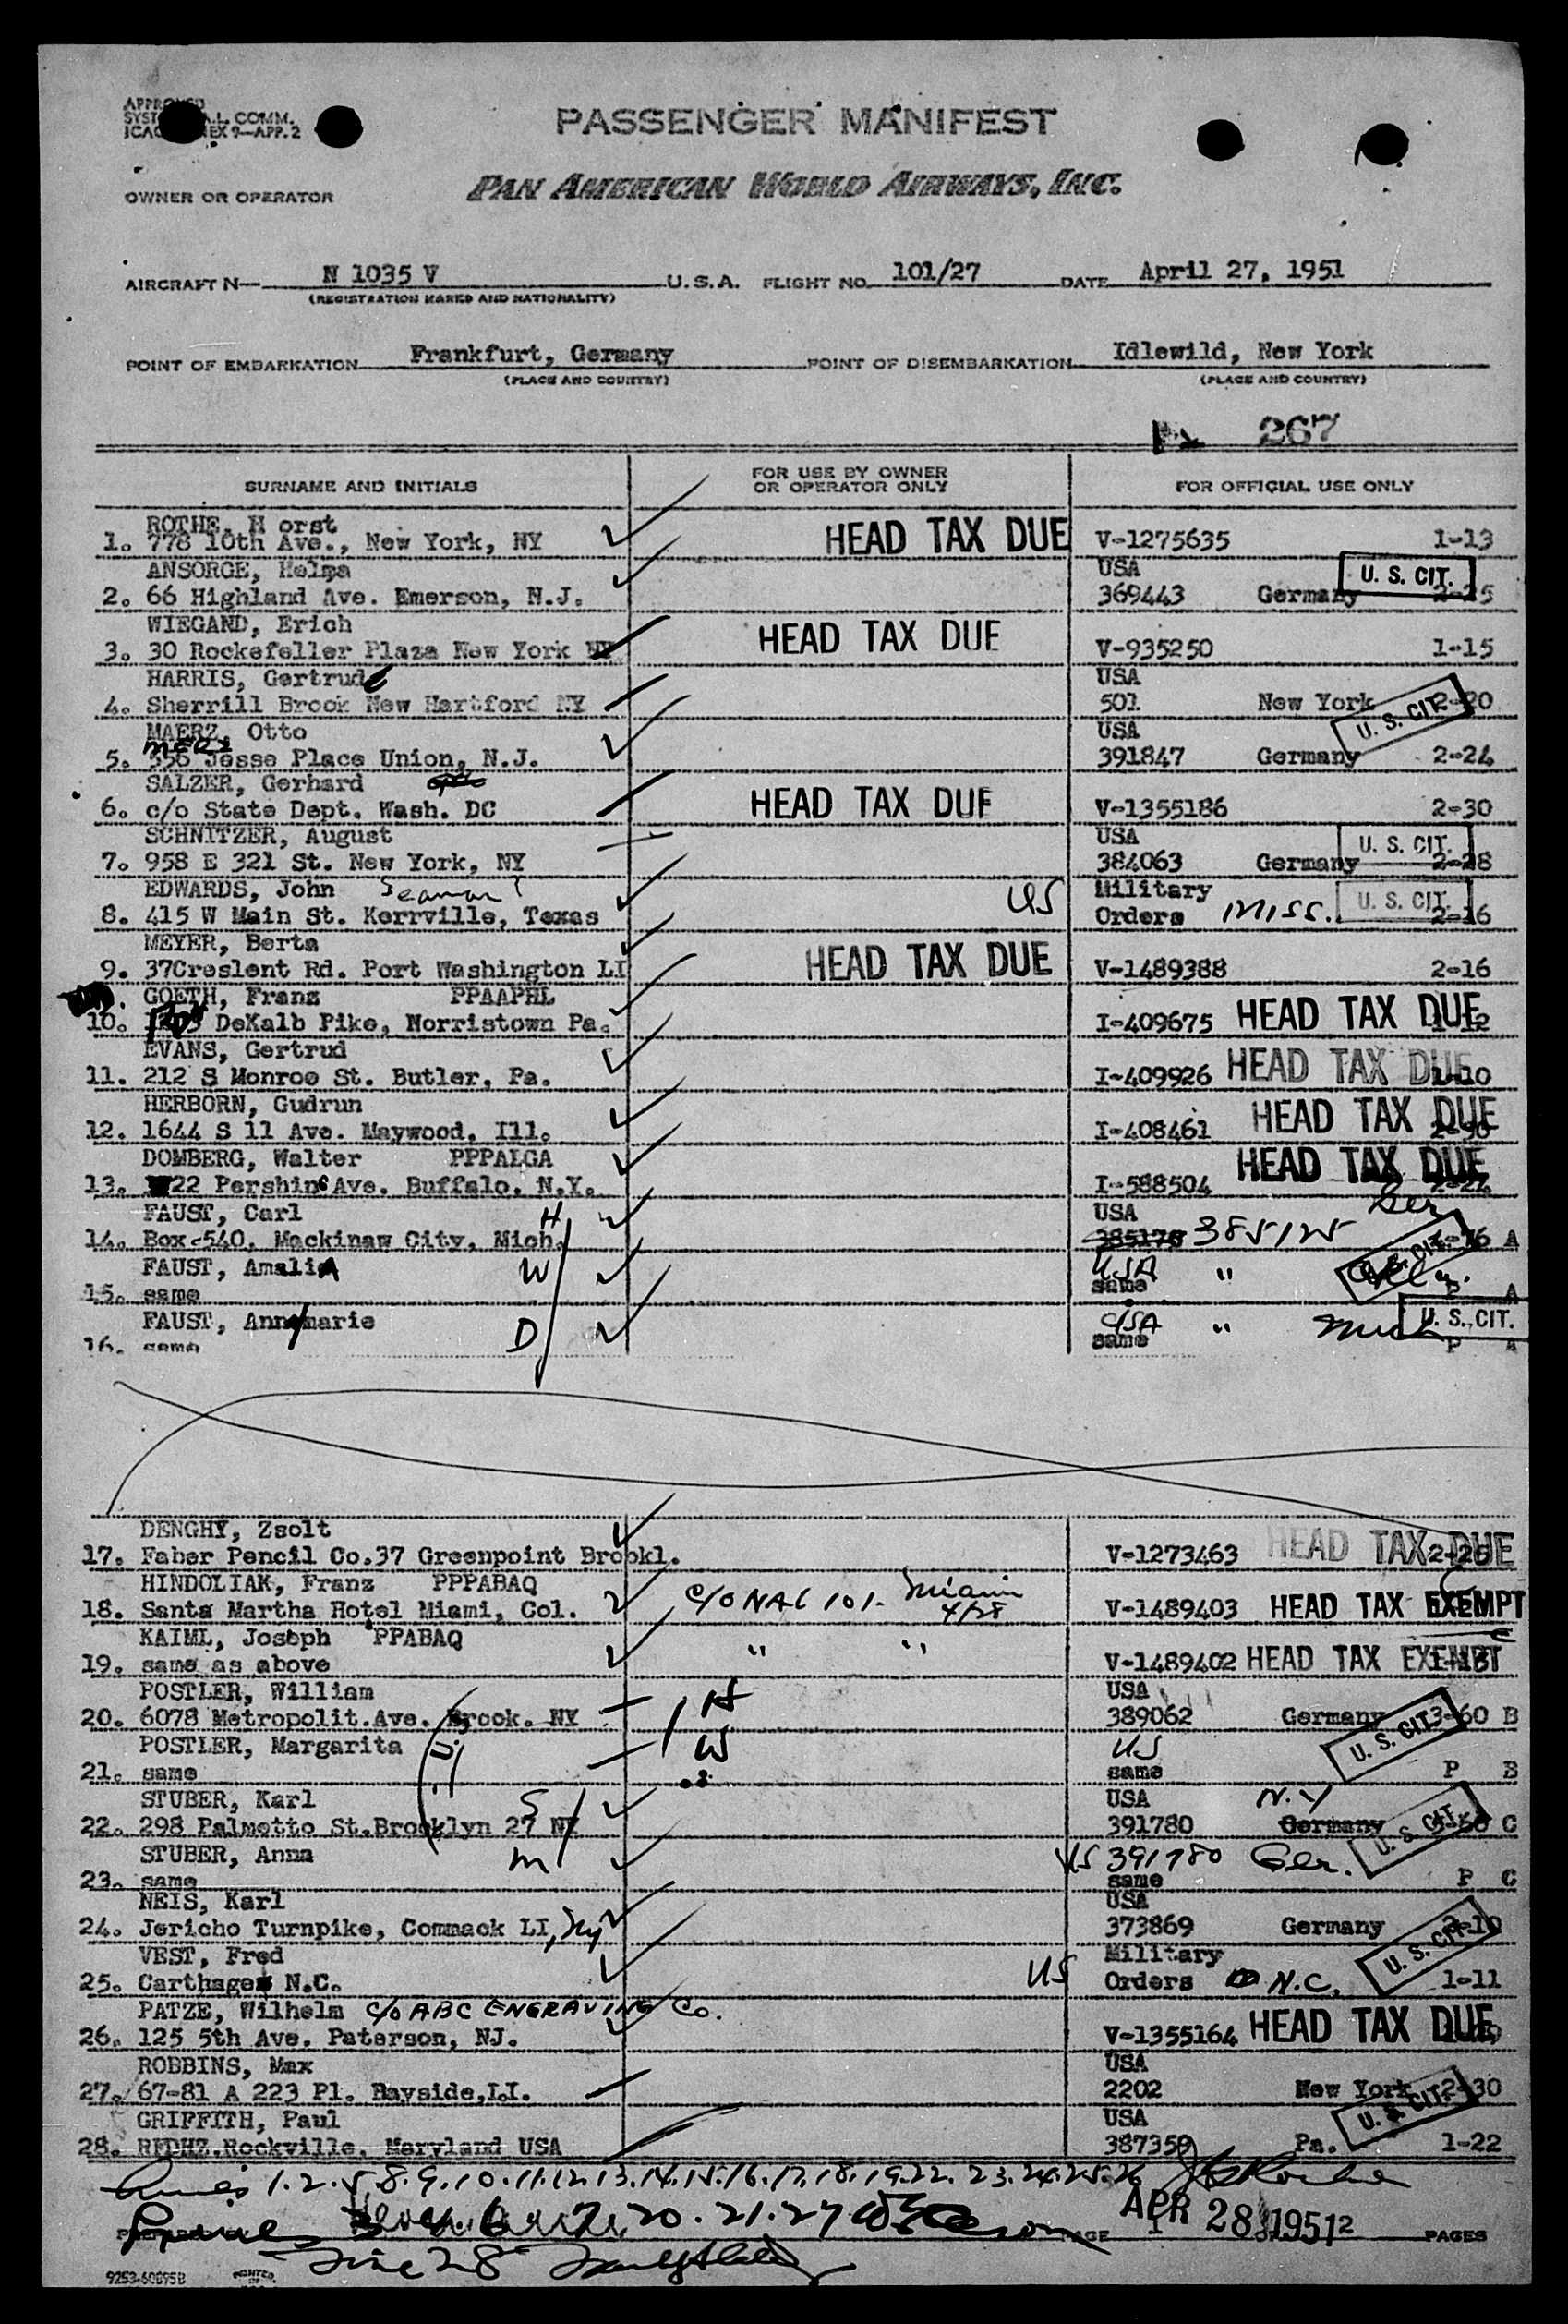 APPROVED
SYST A.L. COMM.
ICAO ANNEX 9—APP. 2
PASSENGER MANIFEST
OWNER OR OPERATOR PAN AMERICAN WORLD AIRWAYS, INC.
AIRCRAFT N— N 1035 V U.S.A. FLIGHT NO. 101/27 DATE April 27, 1951
(REGISTRATION MARKS AND NATIONALITY)
POINT OF EMBARKATION Frankfurt, Germany POINT OF DISEMBARKATION Idlewild, New York
(PLACE AND COUNTRY) (PLACE AND COUNTRY)
267
SURNAME AND INITIALS FOR USE BY OWNER OR OPERATOR ONLY FOR OFFICIAL USE ONLY
ROTHE, H orst
1. 778 10th Ave., New York, NY HEAD TAX DUE V-1275635 1-13
ANSORGE, Helma USA U. S. CIT.
2. 66 Highland Ave. Emerson, N.J. 369443 Germany 2-25
WIEGAND, Erich
3. 30 Rockefeller Plaza New York NY HEAD TAX DUE V-935250 1-15
HARRIS, Gertrude USA
4. Sherrill Brook New Hartford NY 501 New York U. S. CIT. 2-20
MAERZ, Otto USA
5. 356 Jesse Place Union, N.J. 391847 Germany 2-24
SALZER, Gerhard
6. c/o State Dept. Wash. DC HEAD TAX DUE V-1355186 2-30
SCHNITZER, August USA U. S. CIT.
7. 958 E 321 St. New York, NY 384063 Germany 2-28
EDWARDS, John Seaman ? US Military U. S. CIT.
8. 415 W Main St. Kerrville, Texas Orders MISS. 2-16
MEYER, Berta
9. 37Creslent Rd. Port Washington LI HEAD TAX DUE V-1489388 2-16
GOETH, Franz PPAAPHL
10. DeKalb Pike, Norristown Pa. I-409675 HEAD TAX DUE 1-12
EVANS, Gertrud
11. 212 S Monroe St. Butler, Pa. I-409926 HEAD TAX DUE
HERBORN, Gudrun
12. 1644 S 11 Ave. Maywood, Ill. I-408461 HEAD TAX DUE
DOMBERG, Walter PPPALGA
13. 22 Pershing Ave. Buffalo, N.Y. I-588504 HEAD TAX DUE
FAUST, Carl H USA Ger
14. Box-540, Mackinaw City, Mich. 385175 385125 A
FAUST, Amalia W USA "
15. same same A
FAUST, Annemarie D USA " Mich U. S. CIT.
16. same same P A
DENGHY, Zsolt
17. Faber Pencil Co.37 Greenpoint Brookl. V-1273463 HEAD TAX DUE 2-26
HINDOLIAK, Franz PPPABAQ
18. Santa Martha Hotel Miami, Col. c/o NAL 101- Miami 4/28 V-1489403 HEAD TAX EXEMPT
KAIML, Joseph PPABAQ
19. same as above " " V-1489402 HEAD TAX EXEMPT
POSTLER, William H USA
20. 6078 Metropolit.Ave. Brook. NY 389062 Germany U. S. CIT. 3-60 B
POSTLER, Margarita W US
21. same same P B
STUBER, Karl S USA N.Y
22. 298 Palmetto St.Brooklyn 27 NY 391780 Germany U. S. CIT. C
STUBER, Anna M US 391780 Ger.
23. same same P C
NEIS, Karl USA
24. Jericho Turnpike, Commack LI, NY 373869 Germany U. S. CIT.
VEST, Fred US Military
25. Carthage N.C. Orders N.C. 1-11
PATZE, Wilhelm c/o ABC ENGRAVING Co.
26. 125 5th Ave. Paterson, NJ. V-1355164 HEAD TAX DUE
ROBBINS, Max USA
27. 67-81 A 223 Pl. Bayside,L.I. 2202 New York U. S. CIT. 2-30
GRIFFITH, Paul USA
28. RFDH2.Rockville, Maryland USA 387359 Pa. 1-22
1.2.5.8.9.10.11.12.13.14.15.16.17.18.19.22.23.24.25.26
7.20.21.27 APR 28 1951 PAGE 1 2 PAGES
Line 28
9253-60895B PRINTED